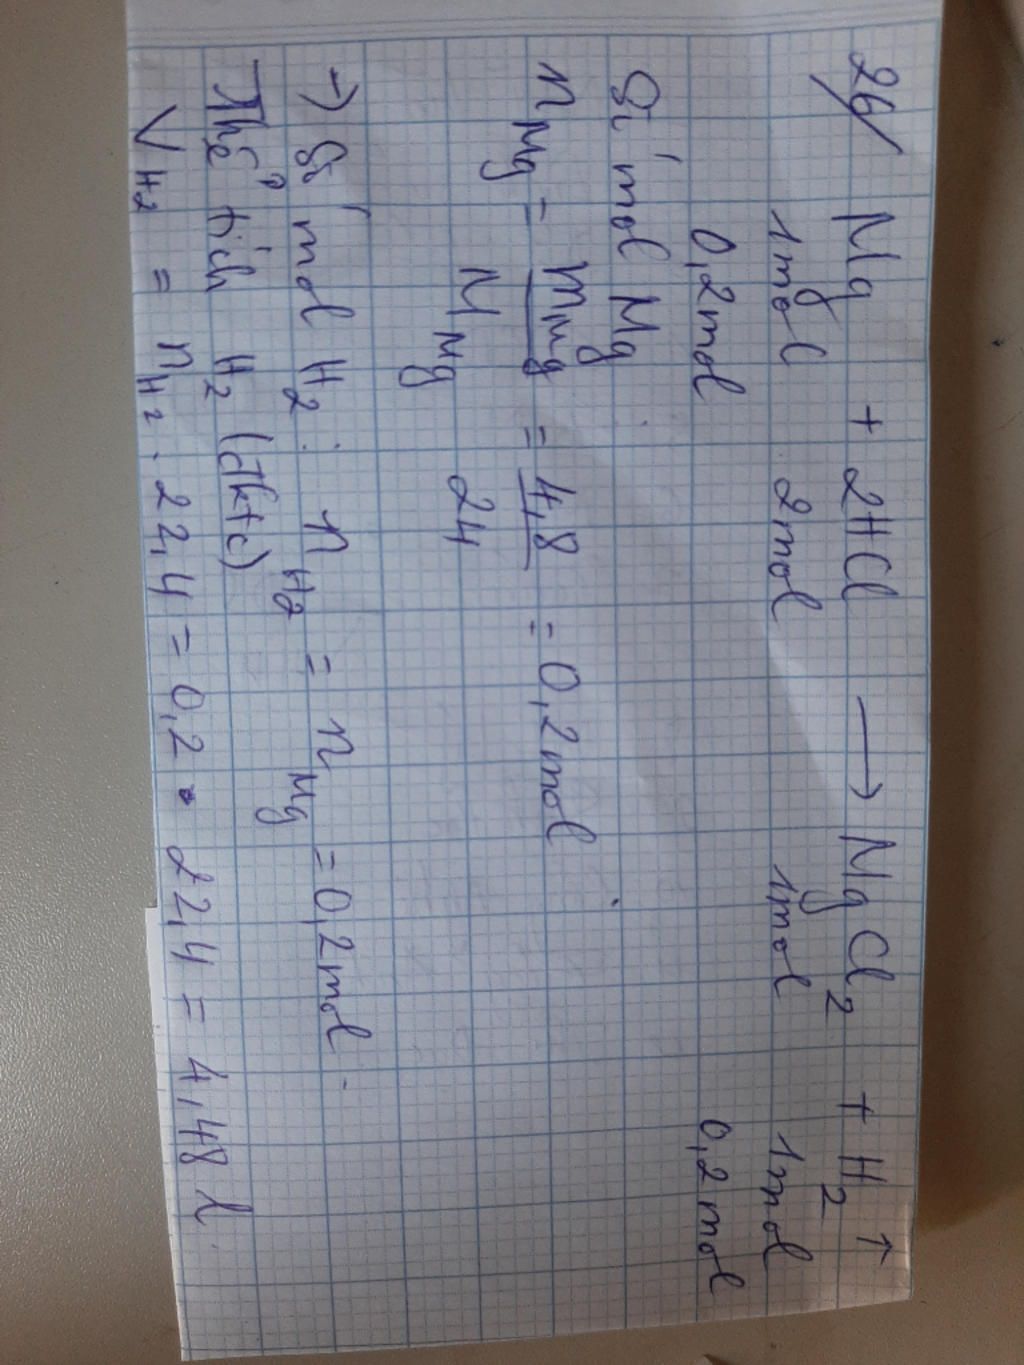 26/ Mg + 2HCl → MgCl2 + H2 ↑
1mol 2mol 1mol 1mol
0,2mol 0,2mol
Số mol Mg:
nMg = mMg / MMg = 4,8 / 24 = 0,2mol.
→ Số mol H2: nH2 = nMg = 0,2mol.
Thể tích H2 (đktc)
VH2 = nH2 . 22,4 = 0,2 . 22,4 = 4,48 l